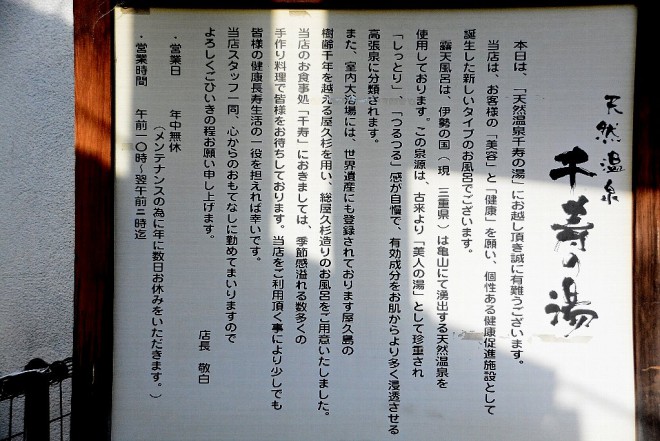 天然温泉
千寿の湯
本日は、「天然温泉千寿の湯」にお越し頂き誠に有難うございます。
当店は、お客様の「美容」と「健康」を願い、個性ある健康促進施設として
誕生した新しいタイプのお風呂でございます。
露天風呂は、伊勢の国（現 三重県）は亀山にて湧出する天然温泉を
使用しております。この泉源は、古来より「美人の湯」として珍重され
「しっとり」、「つるつる」感が自慢で、有効成分をお肌からより多く浸透させる
高張泉に分類されます。
また、室内大浴場には、世界遺産にも登録されております屋久島の
樹齢千年を越える屋久杉を用い、総屋久杉造りのお風呂をご用意いたしました。
当店のお食事処「千寿」におきましては、季節感溢れる数多くの
手作り料理で皆様をお待ちしております。当店をご利用頂く事により少しでも
皆様の健康長寿生活の一役を担えれば幸いです。
当店スタッフ一同、心からのおもてなしに勤めてまいりますので
よろしくごひいきの程お願い申し上げます。
店長 敬白
・営業日 年中無休
（メンテナンスの為に年に数日お休みをいただきます。）
・営業時間 午前一〇時～翌午前三時迄